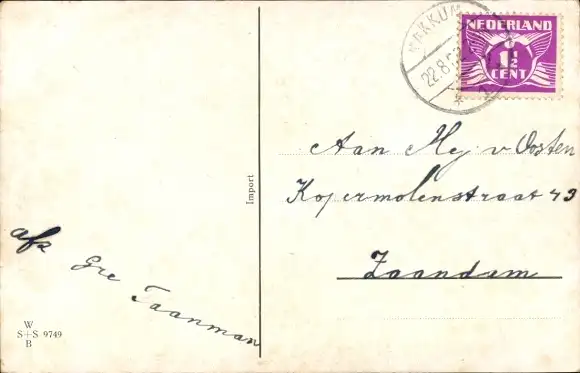 MAKKUM
22.8.
NEDERLAND
1½
CENT
Aan Mej v Oosten
Kopermolenstraat 43
Zaandam
Import
afz
Gre Taanman
W
S+S 9749
B